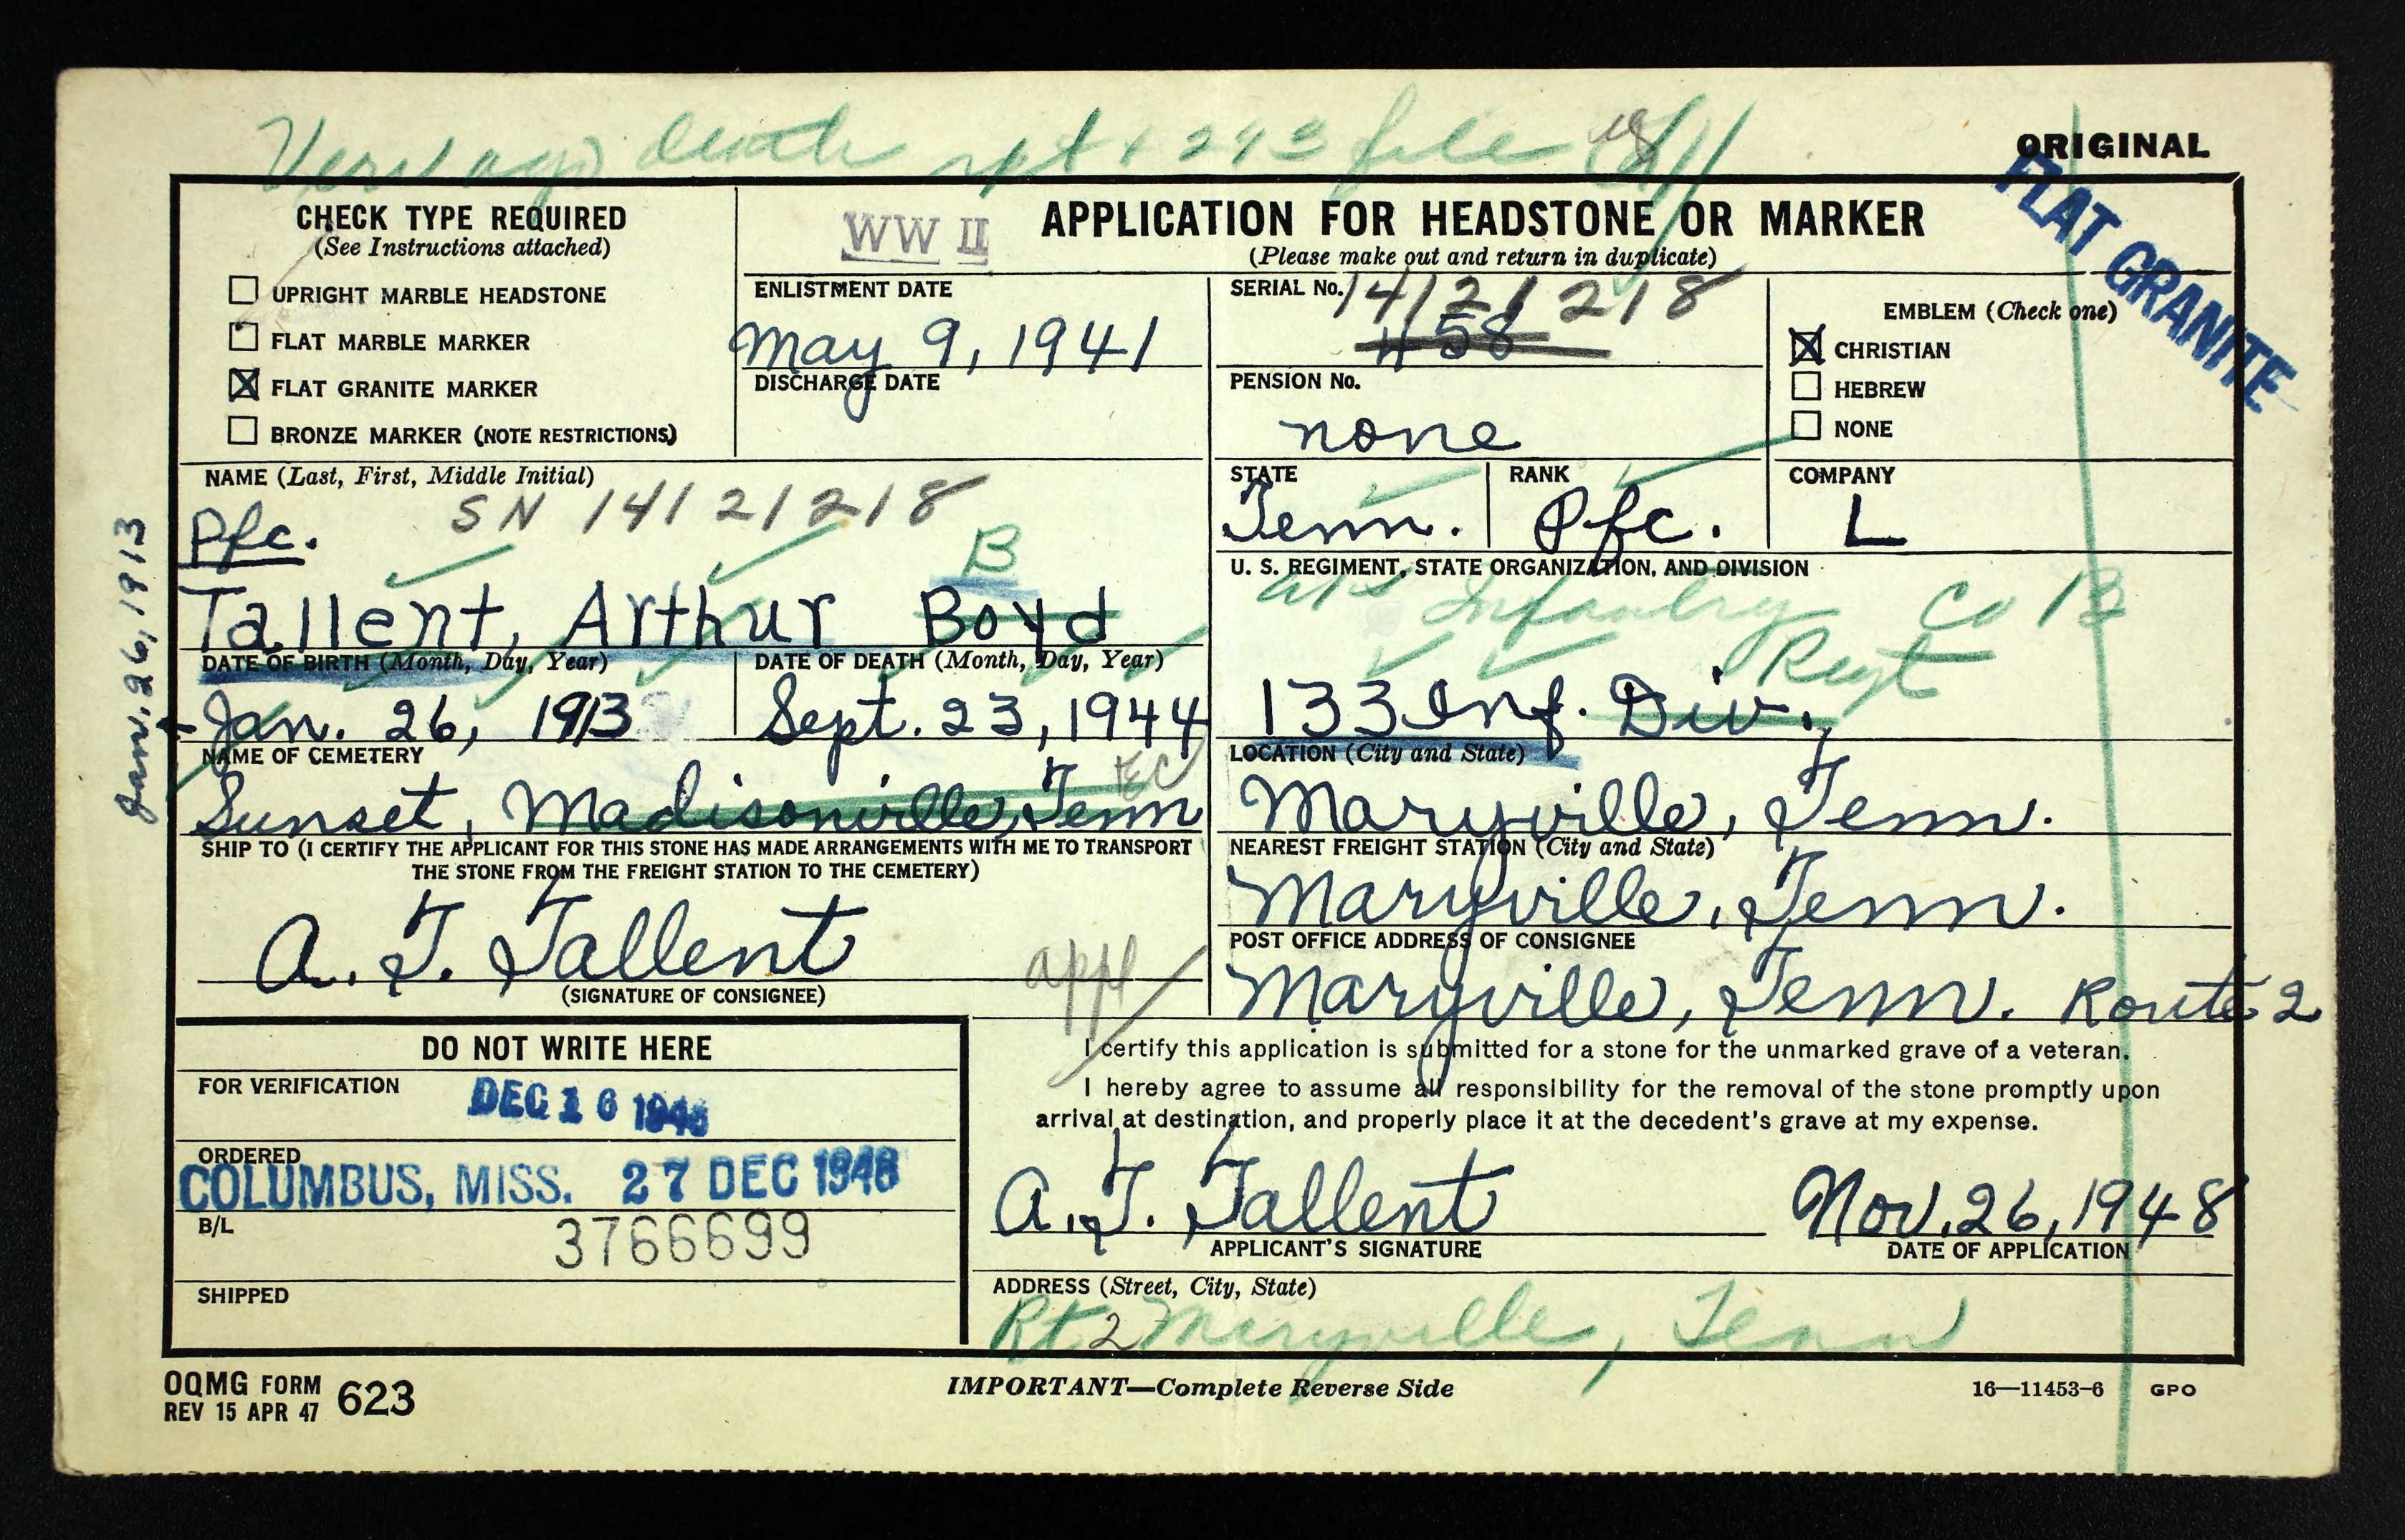 death rpt + 293 file
ORIGINAL
FLAT GRANITE
CHECK TYPE REQUIRED
(See Instructions attached)
UPRIGHT MARBLE HEADSTONE
FLAT MARBLE MARKER
FLAT GRANITE MARKER
BRONZE MARKER (NOTE RESTRICTIONS)
WW II
APPLICATION FOR HEADSTONE OR MARKER
(Please make out and return in duplicate)
ENLISTMENT DATE
May 9, 1941
DISCHARGE DATE
SERIAL No. 14121218
458
PENSION No.
none
EMBLEM (Check one)
CHRISTIAN
HEBREW
NONE
NAME (Last, First, Middle Initial)
SN 14121218
Pfc.
B
Tallent, Arthur Boyd
STATE
Tenn.
RANK
Pfc.
COMPANY
L
U. S. REGIMENT, STATE ORGANIZATION, AND DIVISION
Infantry Co
Regt
133 Inf. Div.
DATE OF BIRTH (Month, Day, Year)
Jan. 26, 1913
Jan. 26, 1913
DATE OF DEATH (Month, Day, Year)
Sept. 23, 1944
NAME OF CEMETERY
Sunset, Madisonville, Tenn
LOCATION (City and State)
Maryville, Tenn.
SHIP TO (I CERTIFY THE APPLICANT FOR THIS STONE HAS MADE ARRANGEMENTS WITH ME TO TRANSPORT
THE STONE FROM THE FREIGHT STATION TO THE CEMETERY)
A. T. Tallent
(SIGNATURE OF CONSIGNEE)
appl
NEAREST FREIGHT STATION (City and State)
Maryville, Tenn.
POST OFFICE ADDRESS OF CONSIGNEE
Maryville, Tenn. Route 2
DO NOT WRITE HERE
FOR VERIFICATION
DEC 16 1948
ORDERED
COLUMBUS, MISS. 27 DEC 1948
B/L
3766699
SHIPPED
I certify this application is submitted for a stone for the unmarked grave of a veteran.
I hereby agree to assume all responsibility for the removal of the stone promptly upon
arrival at destination, and properly place it at the decedent's grave at my expense.
A. T. Tallent
APPLICANT'S SIGNATURE
Nov. 26, 1948
DATE OF APPLICATION
ADDRESS (Street, City, State)
Rt 2 Maryville, Tenn
OQMG FORM 623
REV 15 APR 47
IMPORTANT—Complete Reverse Side
16—11453-6 GPO